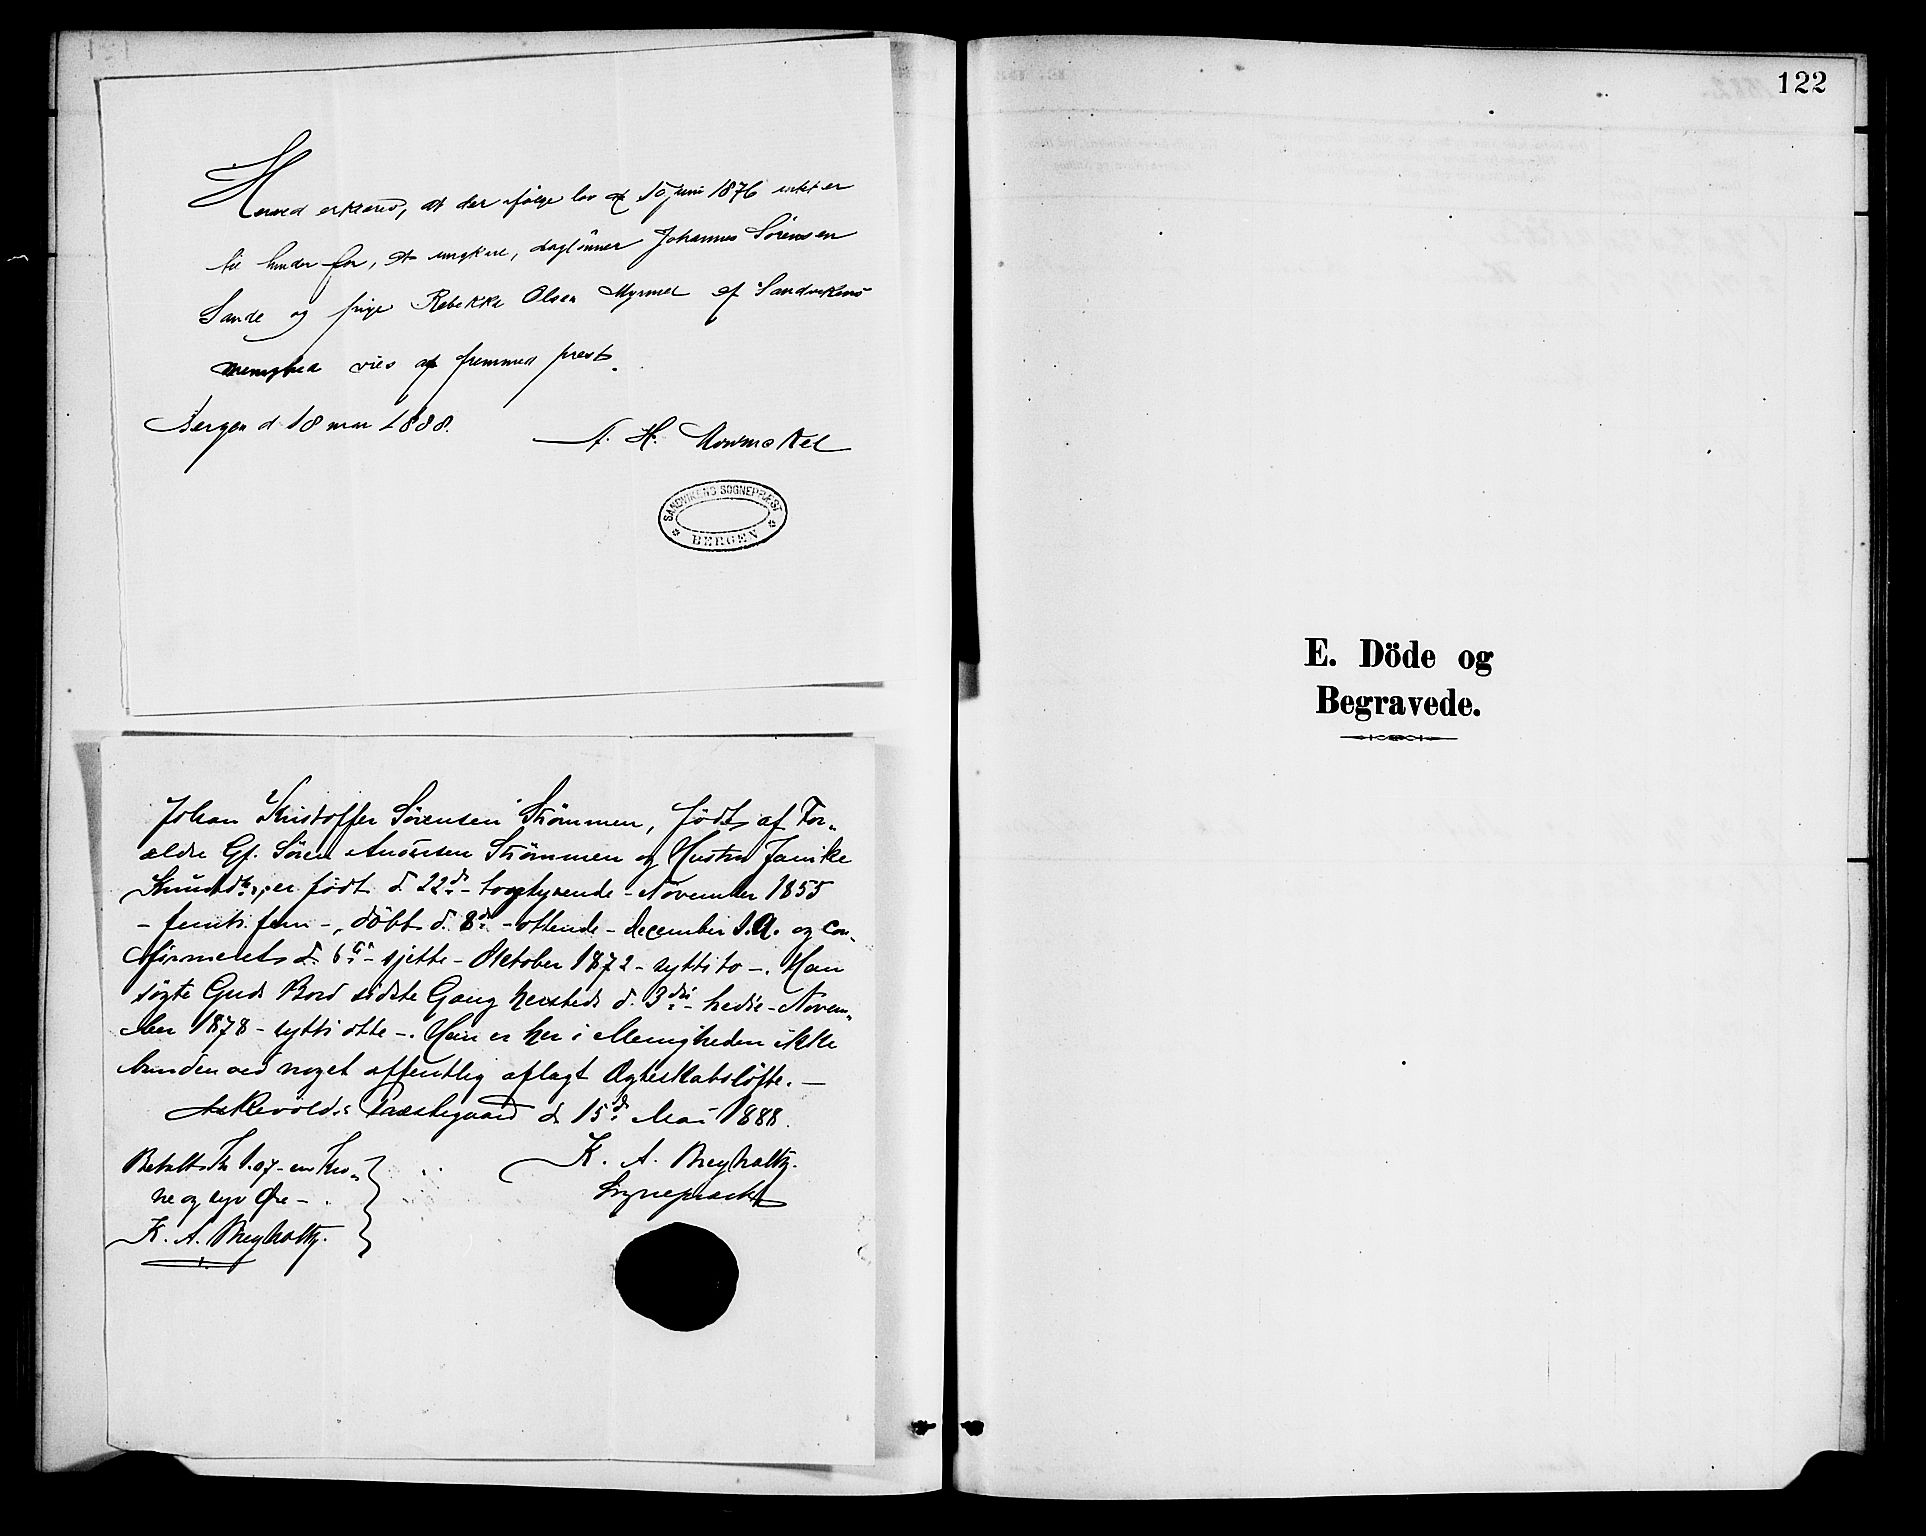 Herved erklæres, at der ifølge lov af 10 juni 1876 intet er
til hinder for, at ungkarl, daglønner Johannes Sørensen
Sande og pige Rebekka Olsen Myrmel af Sandvikens
menighed vies af fremmed prest.
Bergen d 18 mai 1888.
H.
SANDVIKENS SOGNEPRÆST
BERGEN
Johan Kristoffer Sørensen Strömmen, født af For-
ældre Gf. Søren Andersen Strömmen og Hustru Janike
er født d. 22de - togtyvende - November 1855
- femti fem -, döbt d. 8de - ottende - december s.A. og con-
firmeret d. 6te - sjette - Oktober 1872 - sytti to -. Han
søgte Guds Bord sidste Gang hersteds d. 3die - tredie - Novem-
ber 1878 - sytti otte -. Han er her i Menigheden ikke
bunden ved noget offentlig aflagt Ægteskabsløfte. -
Askevolds Præstegaard d. 15de Mai 1888.
K. A. Breyholtz.
Sognepræst
Betalt Kr 1.07 - en Kro-
ne og syv Øre -
K. A. Breyholtz.
122
E. Döde og
Begravede.